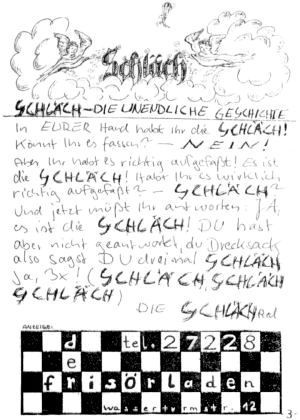 Schläch
SCHLÄCH - DIE UNENDLICHE GESCHICHTE
In EURER Hand habt ihr die SCHLÄCH!
Könnt Ihr es fassen? - NEIN!
Aber Ihr habt es richtig aufgefaßt! Es ist
die SCHLÄCH! Habt Ihr es wirklich
richtig aufgefaßt? - SCHLÄCH?
Und jetzt müßt Ihr antworten: JA,
es ist die SCHLÄCH! DU hast
aber nicht geantwortet, du Drecksack
also sagst DU dreimal SCHLÄCH
Ja, 3x! (SCHLÄCH, SCHLÄCH
SCHLÄCH)
DIE SCHLÄCH
ANZEIGE:
der tel. 27228
frisörladen
wasserturmstr. 12
3